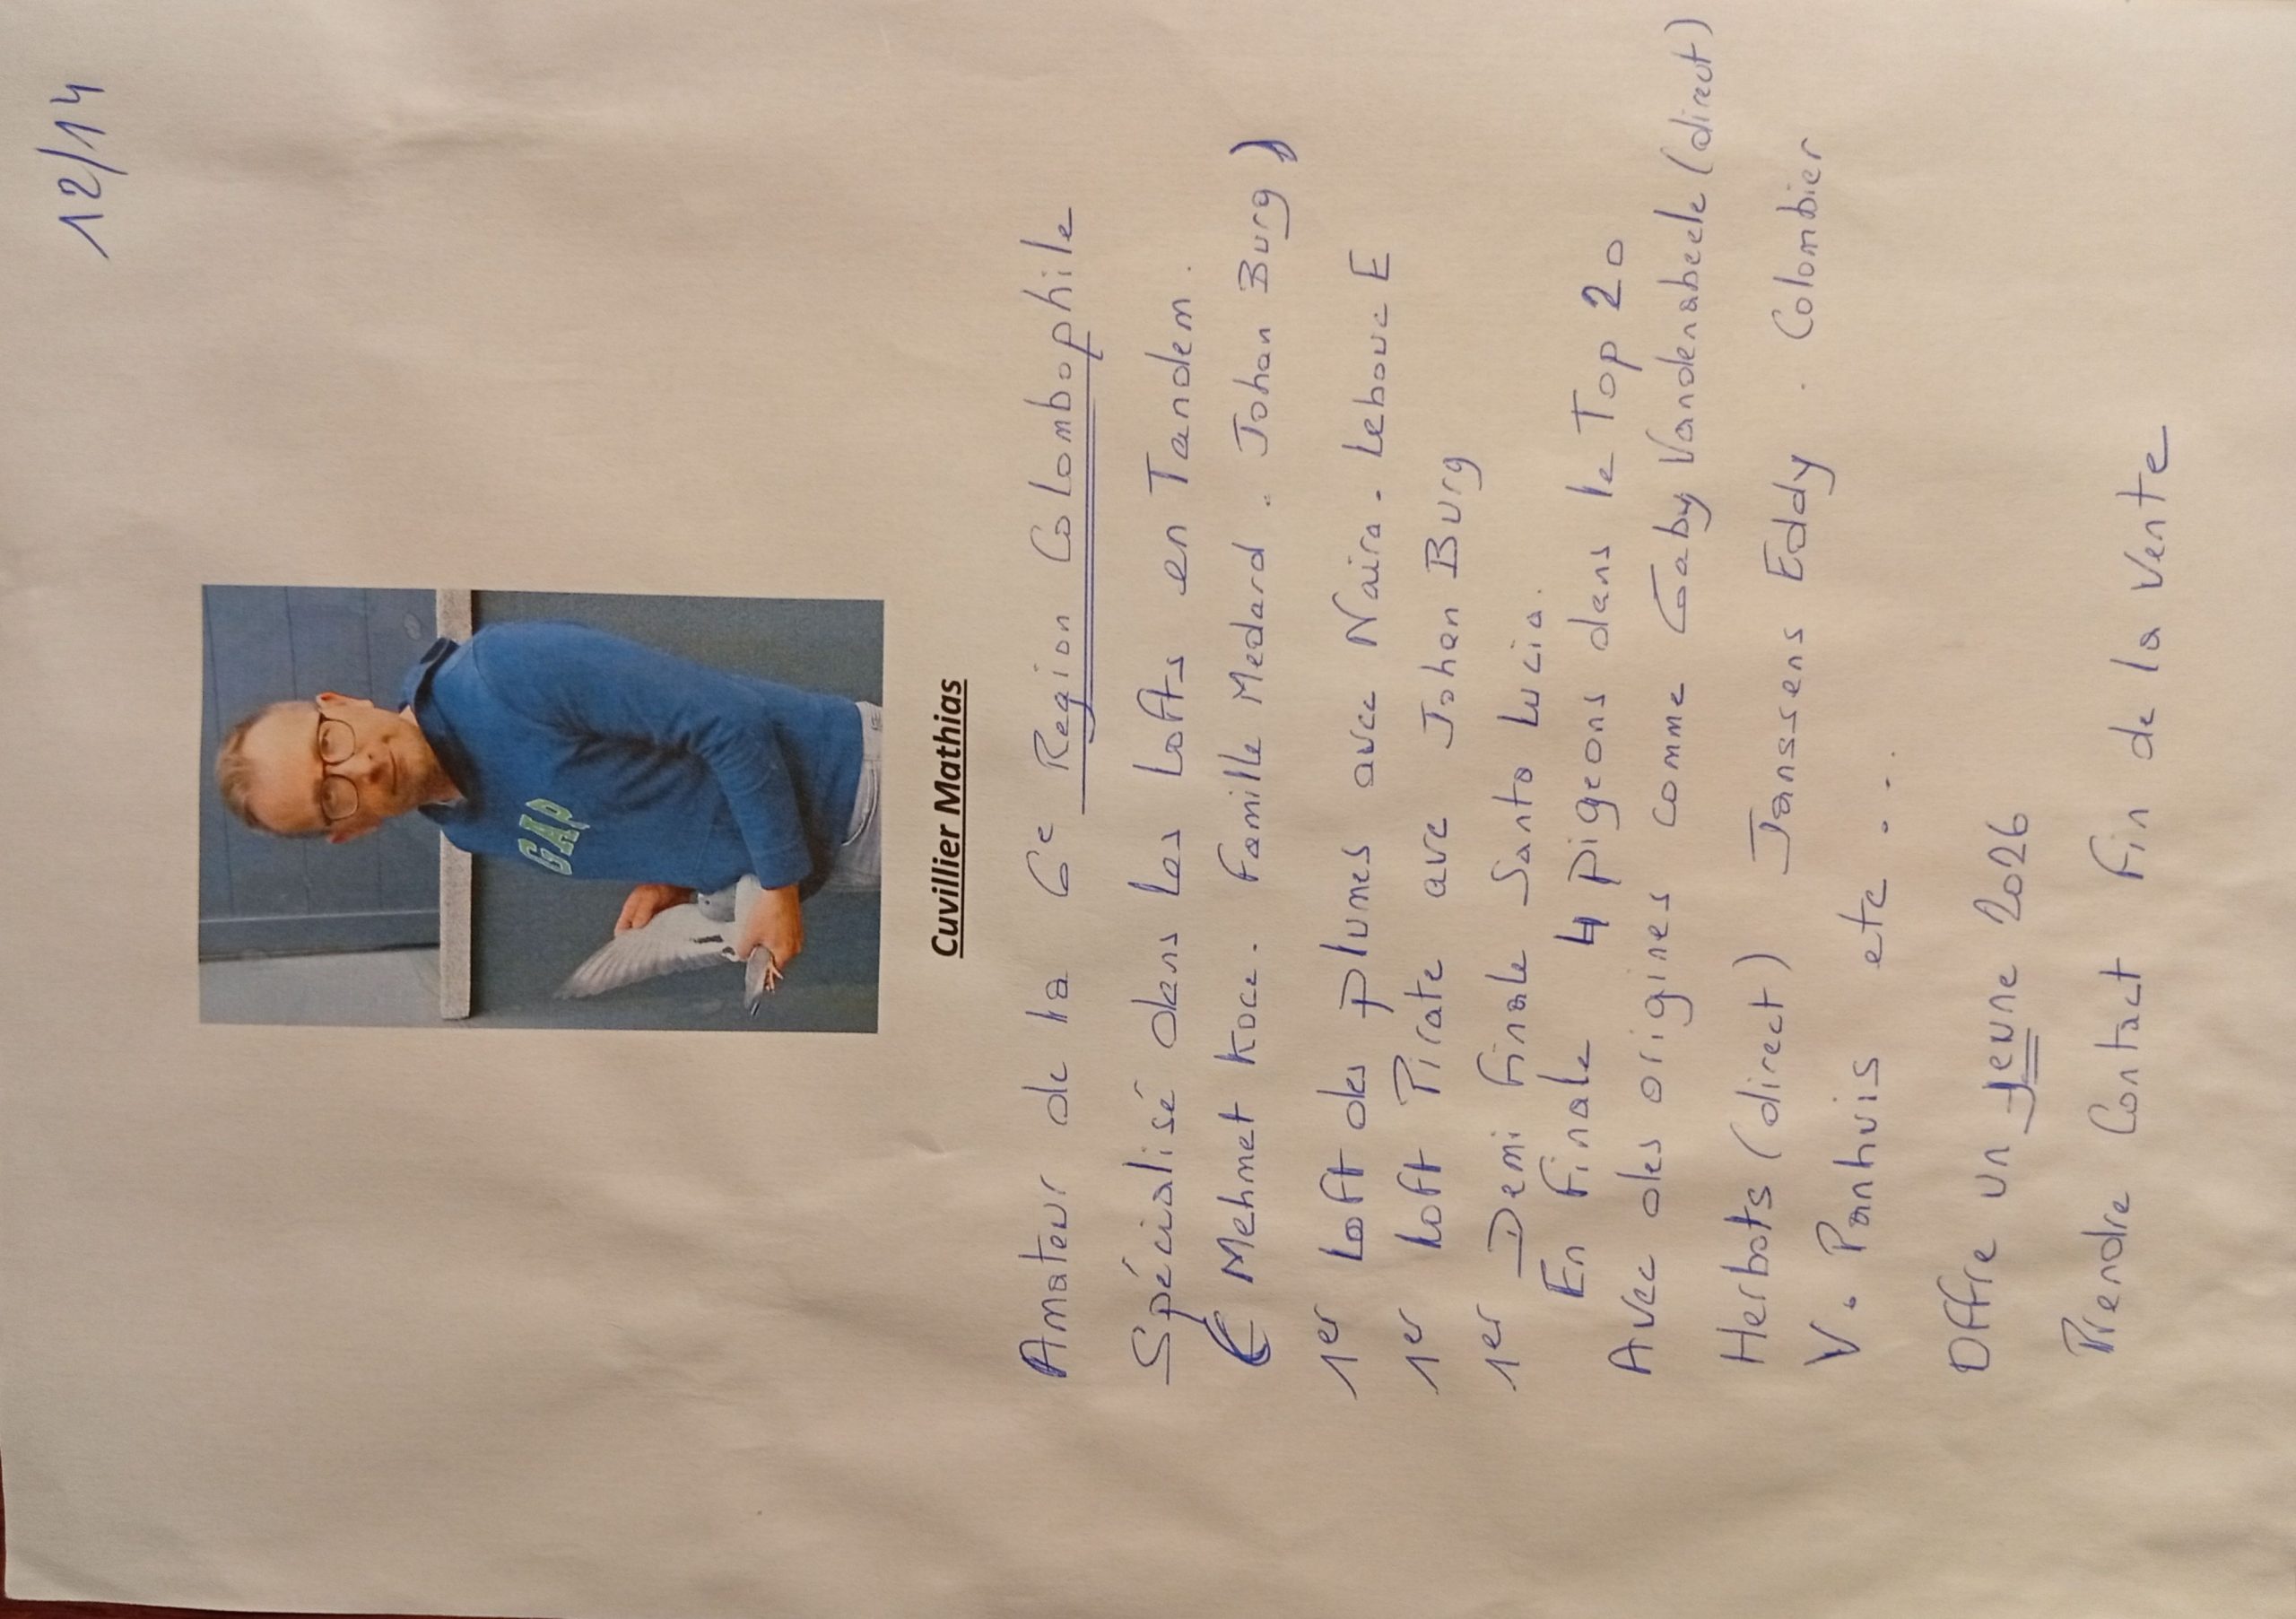 12/14
GAP
Cuvillier Mathias
Amateur de la 6e Region Colombophile
Spécialisé dans les Lofts en Tandem.
( Mehmet Koca. Famille Medard. Johan Burg)
1er Loft des plumes avec Naira. Lebouc E
1er Loft Pirate avc Johan Burg
1er Demi Finale Santa Lucia.
En Finale 4 pigeons dans le Top 20
Avec des origines comme Gaby Vandenabeele (direct)
Herbots (direct) Janssens Eddy. Colombier
V. Panhuis etc...
Offre un jeune 2026
Prendre Contact Fin de la Vente